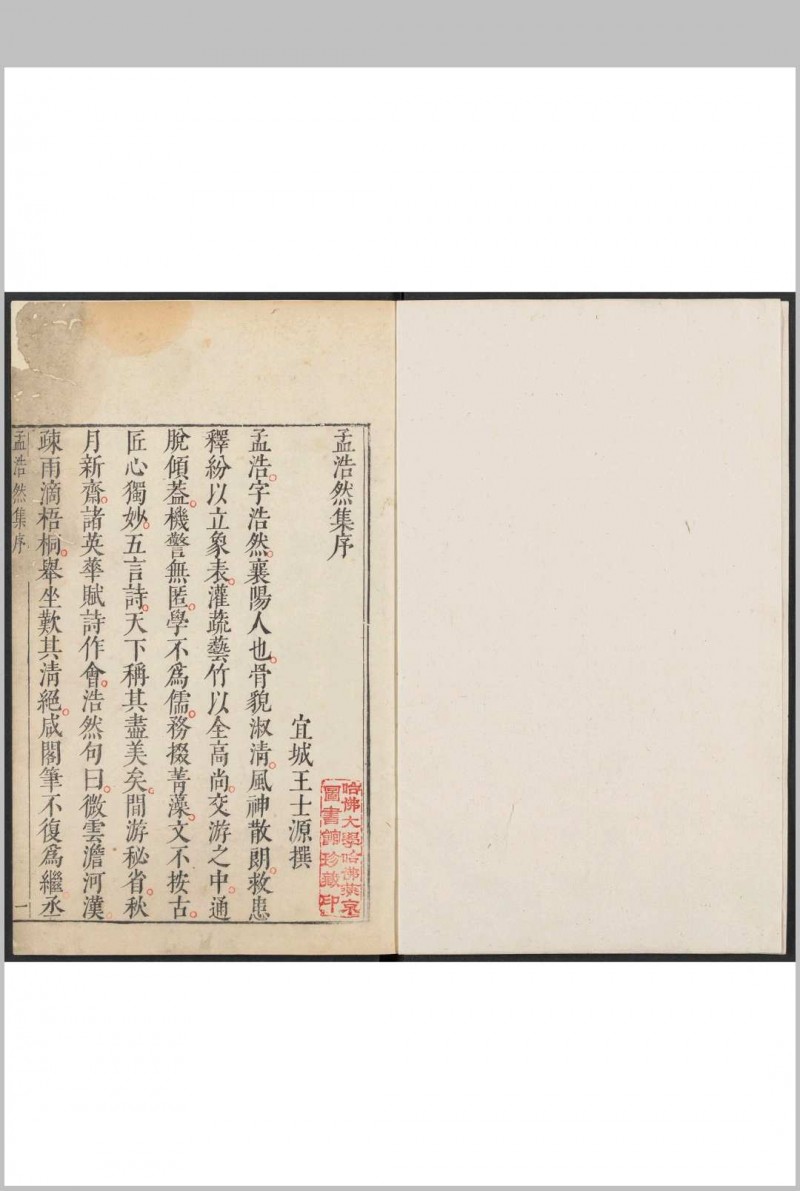 孟浩然集序
宜城王士源撰
孟浩。字浩然。襄陽人也。骨貌淑清。風神散朗。救患
釋紛以立象表。灌蔬藝竹以全高尚。交游之中。通
脫傾葢。機警無匿。學不爲儒。務掇菁藻。文不按古。
匠心獨妙。五言詩。天下稱其盡美矣。間游秘省。秋
月新齋。諸英華賦詩作會。浩然句曰。微雲澹河漢。
疎雨滴梧桐。舉坐歎其清絕。咸閣筆不復爲繼丞
孟浩然集序
一
哈佛大學哈佛燕京
圖書館珍藏印